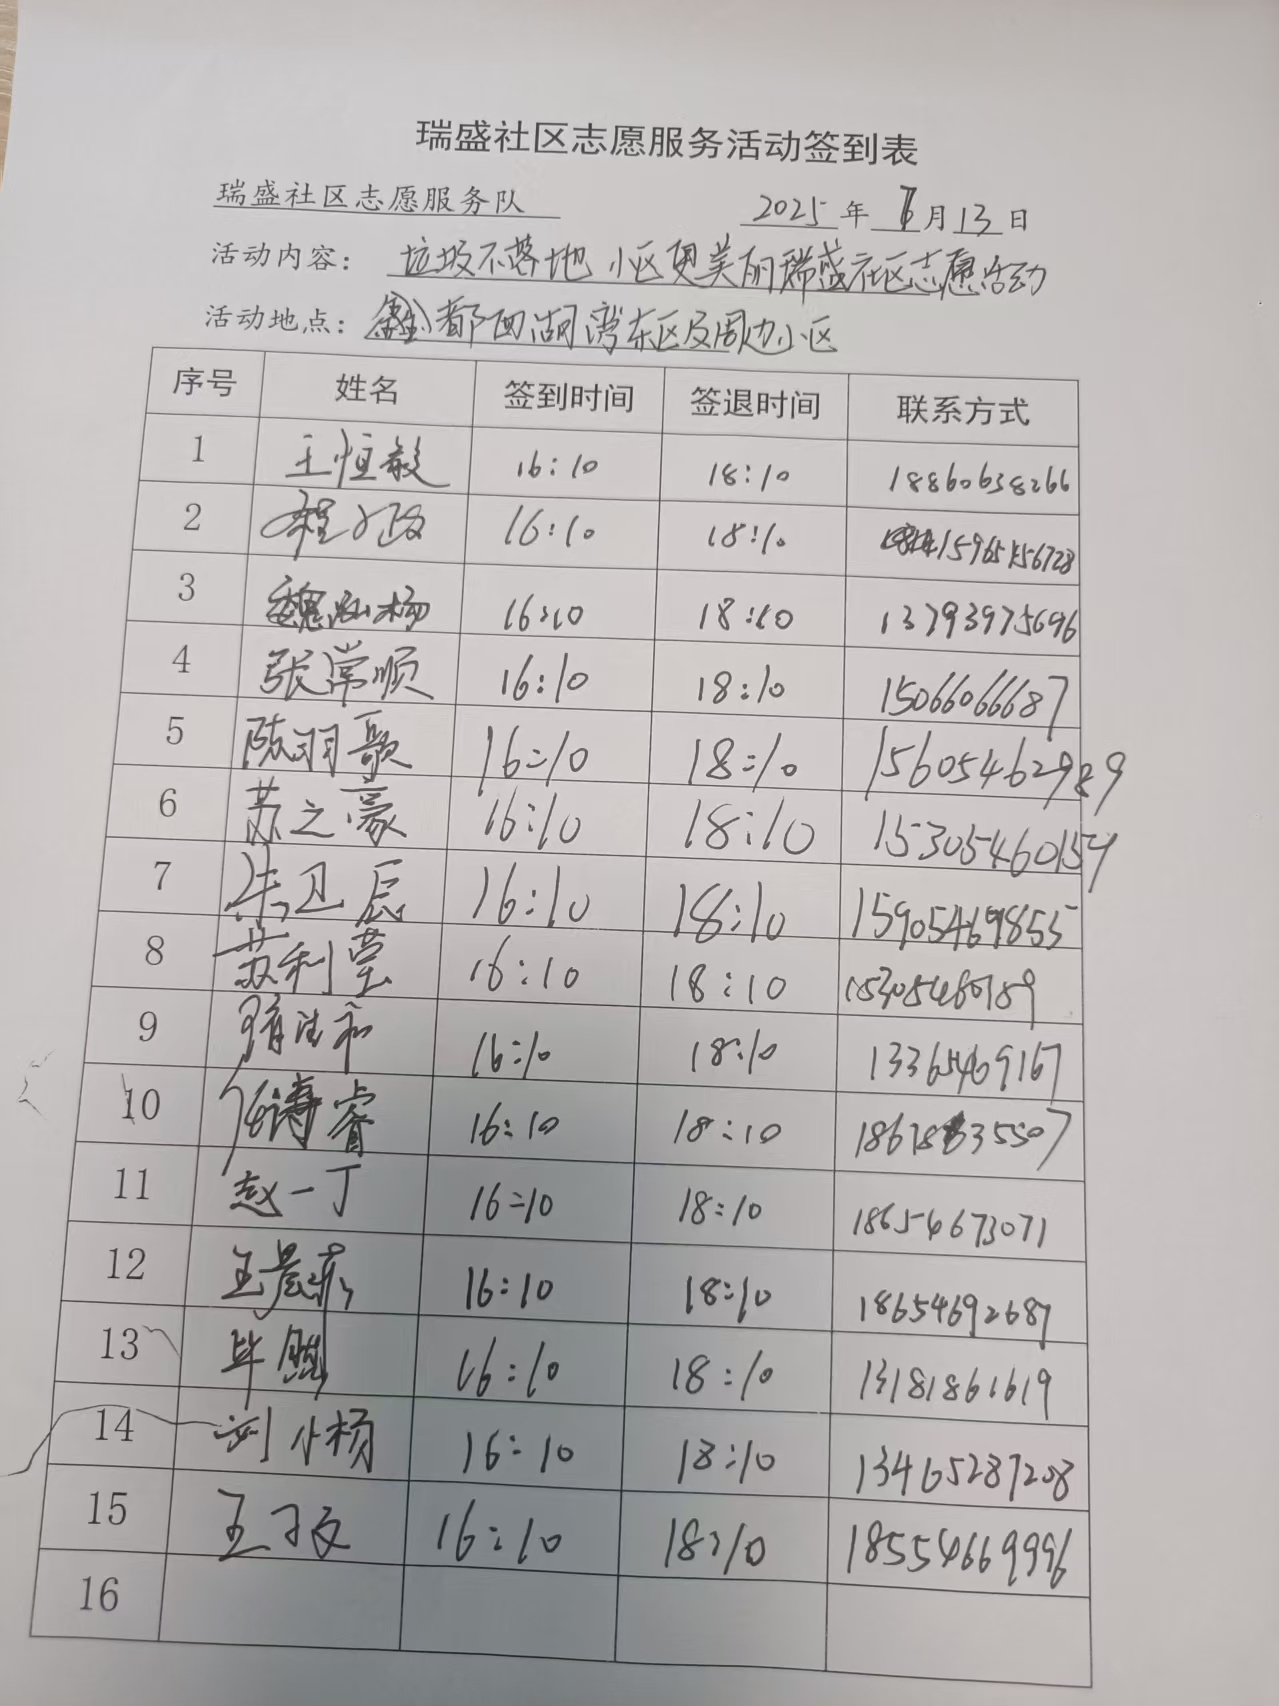 瑞盛社区志愿服务活动签到表
瑞盛社区志愿服务队 2025年 月13日
活动内容：垃圾不落地 小区更美丽瑞盛社区志愿活动
活动地点：鑫都西湖湾东区及周边小区
序号 姓名 签到时间 签退时间 联系方式
1 王恒毅 16:10 18:10 18860638266
2 程 16:10 18:10 15965156728
3 魏 杨 16:10 18:10 13793975696
4 张常顺 16:10 18:10 15066066687
5 陈羽歌 16:10 18:10 15605462989
6 苏之豪 16:10 18:10 15305460154
7 朱卫辰 16:10 18:10 15905469855
8 苏利莹 16:10 18:10 15305460189
9 16:10 18:10 13365469167
10 任诗睿 16:10 18:10
11 赵一丁 16:10 18:10 18654673071
12 王晨 16:10 18:10 18654692687
13 毕 16:10 18:10 13181861619
14 刘小杨 16:10 18:10 13465287208
15 王 16:10 18:10 18554669996
16